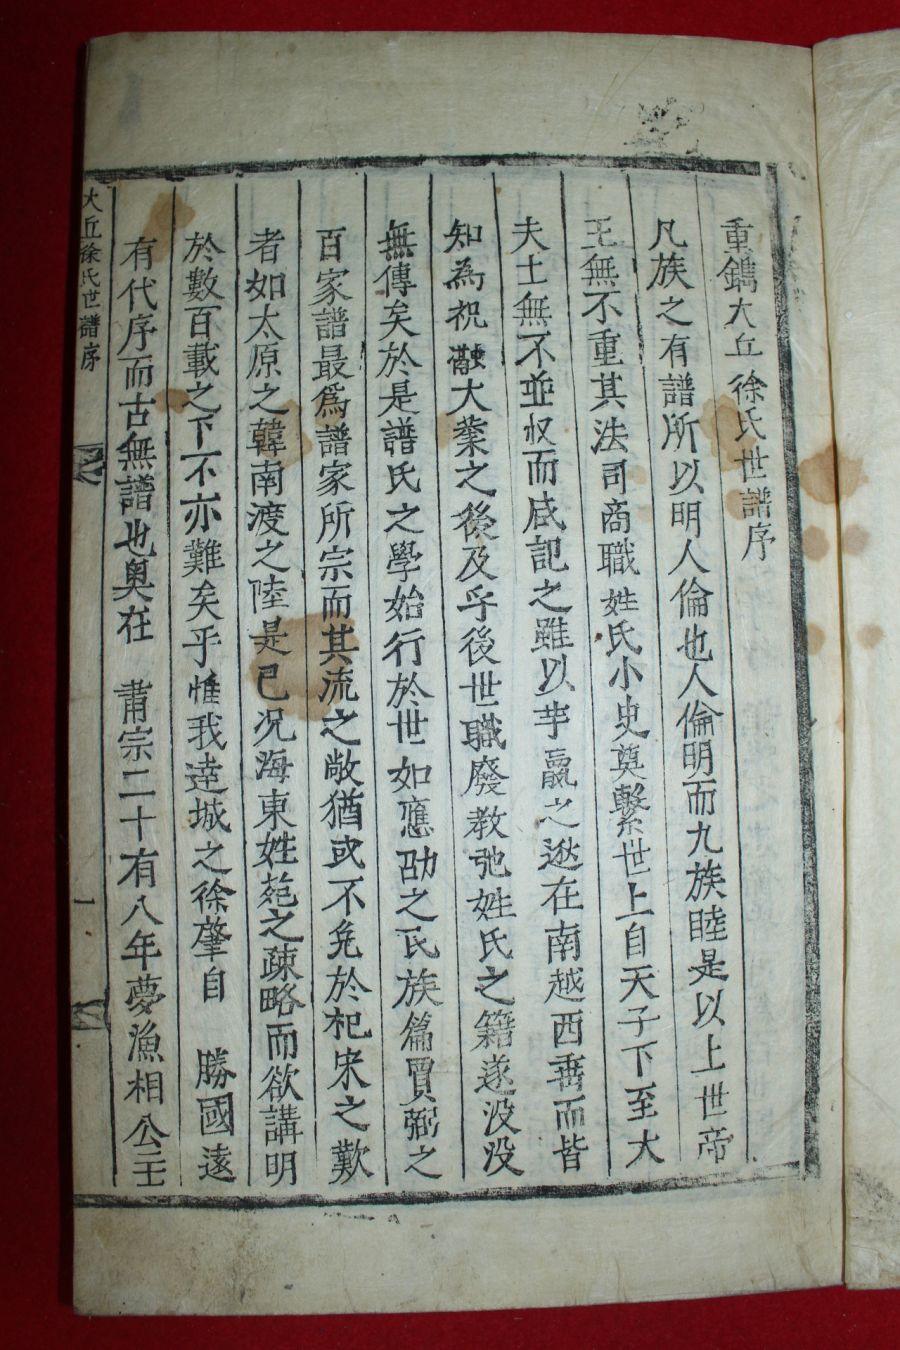 重鐫大丘徐氏世譜序
凡族之有譜所以明人倫也人倫明而九族睦是以上世帝
王無不重其法司商職姓氏小史奠繫世上自天子下至大
夫士無不並収而咸記之雖以芉嬴之逖在南越西垂而皆
知為祝融大業之後及乎後世職廢教弛姓氏之籍遂没没
無傳矣於是譜氏之學始行於世如應劭之氏族篇賈弼之
百家譜最爲譜家所宗而其流之敝猶或不免於杞宋之歎
者如太原之韓南渡之陸是已况海東姓苑之疎略而欲講明
於數百載之下不亦難矣乎惟我達城之徐肇自 勝國遠
有代序而古無譜也奥在 肅宗二十有八年夢漁相公主
大丘徐氏世譜序
一